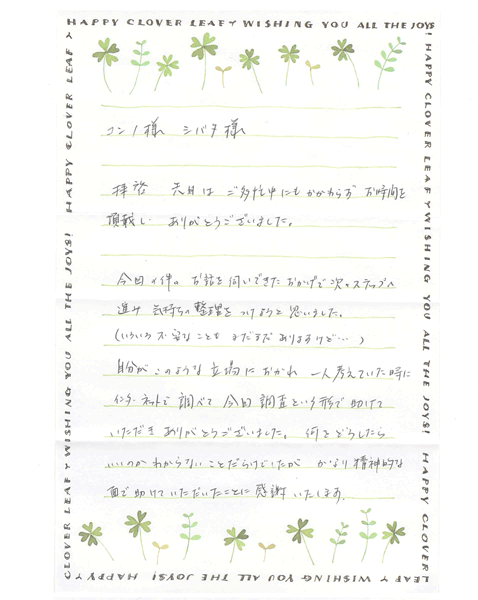 HAPPY CLOVER LEAF Y WISHING YOU ALL THE JOYS!
コンノ様 シバタ様
拝啓 先日は ご多忙中にもかかわらず お時間を
頂戴し ありがとうございました。
今回の件の お話を伺いできたおかげで次のステップへ
進み 気持ちの整理をつけようと思いました。
(いろいろ不安なことも まだまだありますけど…)
自分がこのような立場におかれ 一人考えていた時に
インターネットで調べて 今回調査という形で助けて
いただき ありがとうございました。 何をどうしたら
いいのかわからないことだらけでしたが かなり精神的な
面で助けていただいたことに感謝いたします。
HAPPY CLOVER LEAF Y WISHING YOU ALL THE JOYS! HAPPY CLOVER
LEAF Y WISHING YOU ALL THE JOYS! HAPPY
CLOVER LEAF Y WISHING YOU ALL THE JOYS! HAPPY CLOVER LEAF Y